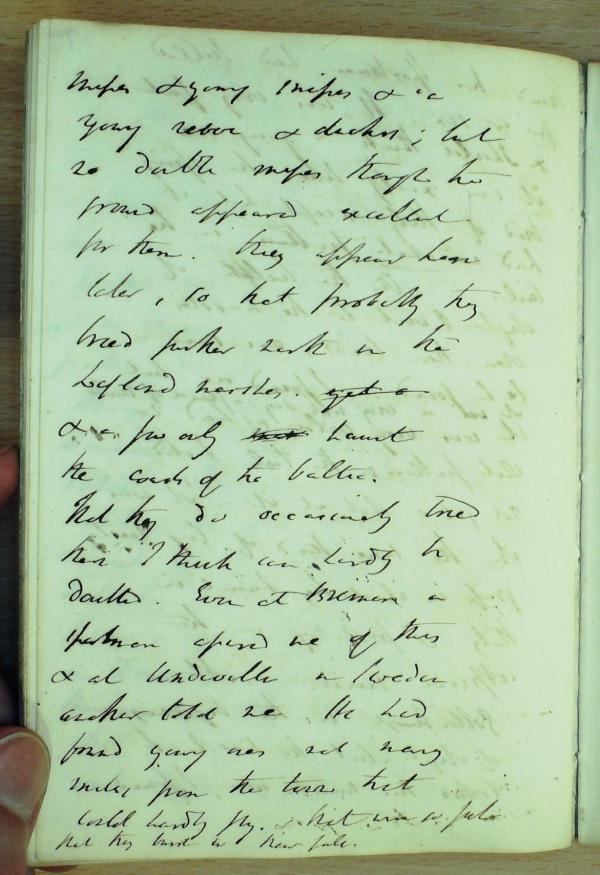 snipes & young snipes & a
young & ducks; but
no double snipes though the
ground appeared excellent
for them. They appear here
later, so that probably they
breed further north in the
Lapland marshes.
& a few only haunt
the coasts of the baltic.
that they do occasionally breed
here I think can hardly be
doubted. Even at Bremen a
sportsman assured me of this
& at in Sweden
another told me He had
found young ones not many
miles from the town that
could hardly fly. & that
that they breed in